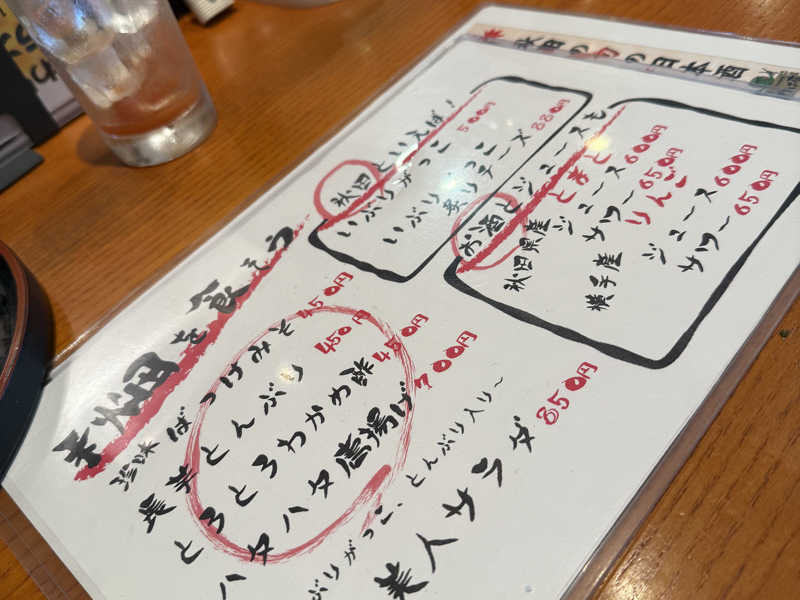 秋田の旬の日本酒
秋田といえば!
いぶりがっこ 500円
いぶりがっこ
炙りチーズ 880円
お酒とジュースも
秋田県産 とまと
ジュース 600円
サワー 650円
横手産 りんご
ジュース 600円
サワー 650円
を食そう
珍味 ばっけみそ 450円
長芋とんぶり 450円
とろとろわかめ酢 450円
ハタハタ唐揚げ 700円
ぶりがっこ、とんぶり入り～
美人サラダ 850円